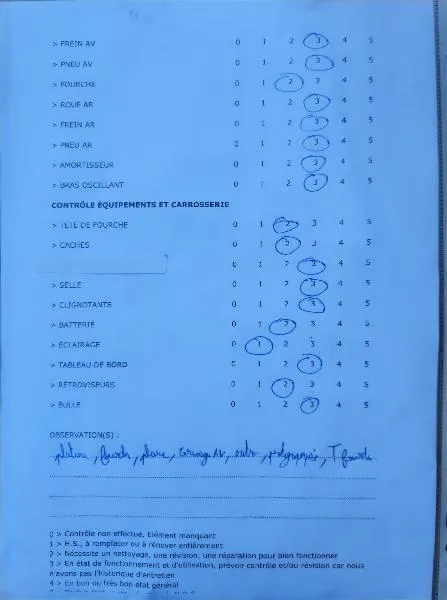 > FREIN AV 0 1 2 3 4 5
> PNEU AV 0 1 2 3 4 5
> FOURCHE 0 1 2 3 4 5
> ROUE AR 0 1 2 3 4 5
> FREIN AR 0 1 2 3 4 5
> PNEU AR 0 1 2 3 4 5
> AMORTISSEUR 0 1 2 3 4 5
> BRAS OSCILLANT 0 1 2 3 4 5
CONTRÔLE ÉQUIPEMENTS ET CARROSSERIE
> TETE DE FOURCHE 0 1 2 3 4 5
> CACHES 0 1 2 3 4 5
0 1 2 3 4 5
> SELLE 0 1 2 3 4 5
> CLIGNOTANTS 0 1 2 3 4 5
> BATTERIE 0 1 2 3 4 5
> ECLAIRAGE 0 1 2 3 4 5
> TABLEAU DE BORD 0 1 2 3 4 5
> RÉTROVISEURS 0 1 2 3 4 5
> BULLE 0 1 2 3 4 5
OBSERVATION(S) :
0 > Contrôle non effectué, Elément manquant
1 > H.S., à remplacer ou à rénover entièrement
2 > Nécessite un nettoyage, une révision, une réparation pour bien fonctionner
3 > En état de fonctionnement et d'utilisation, prévoir contrôle et/ou révision car nous
n'avons pas l'historique d'entretien
4 > En bon ou très bon état général